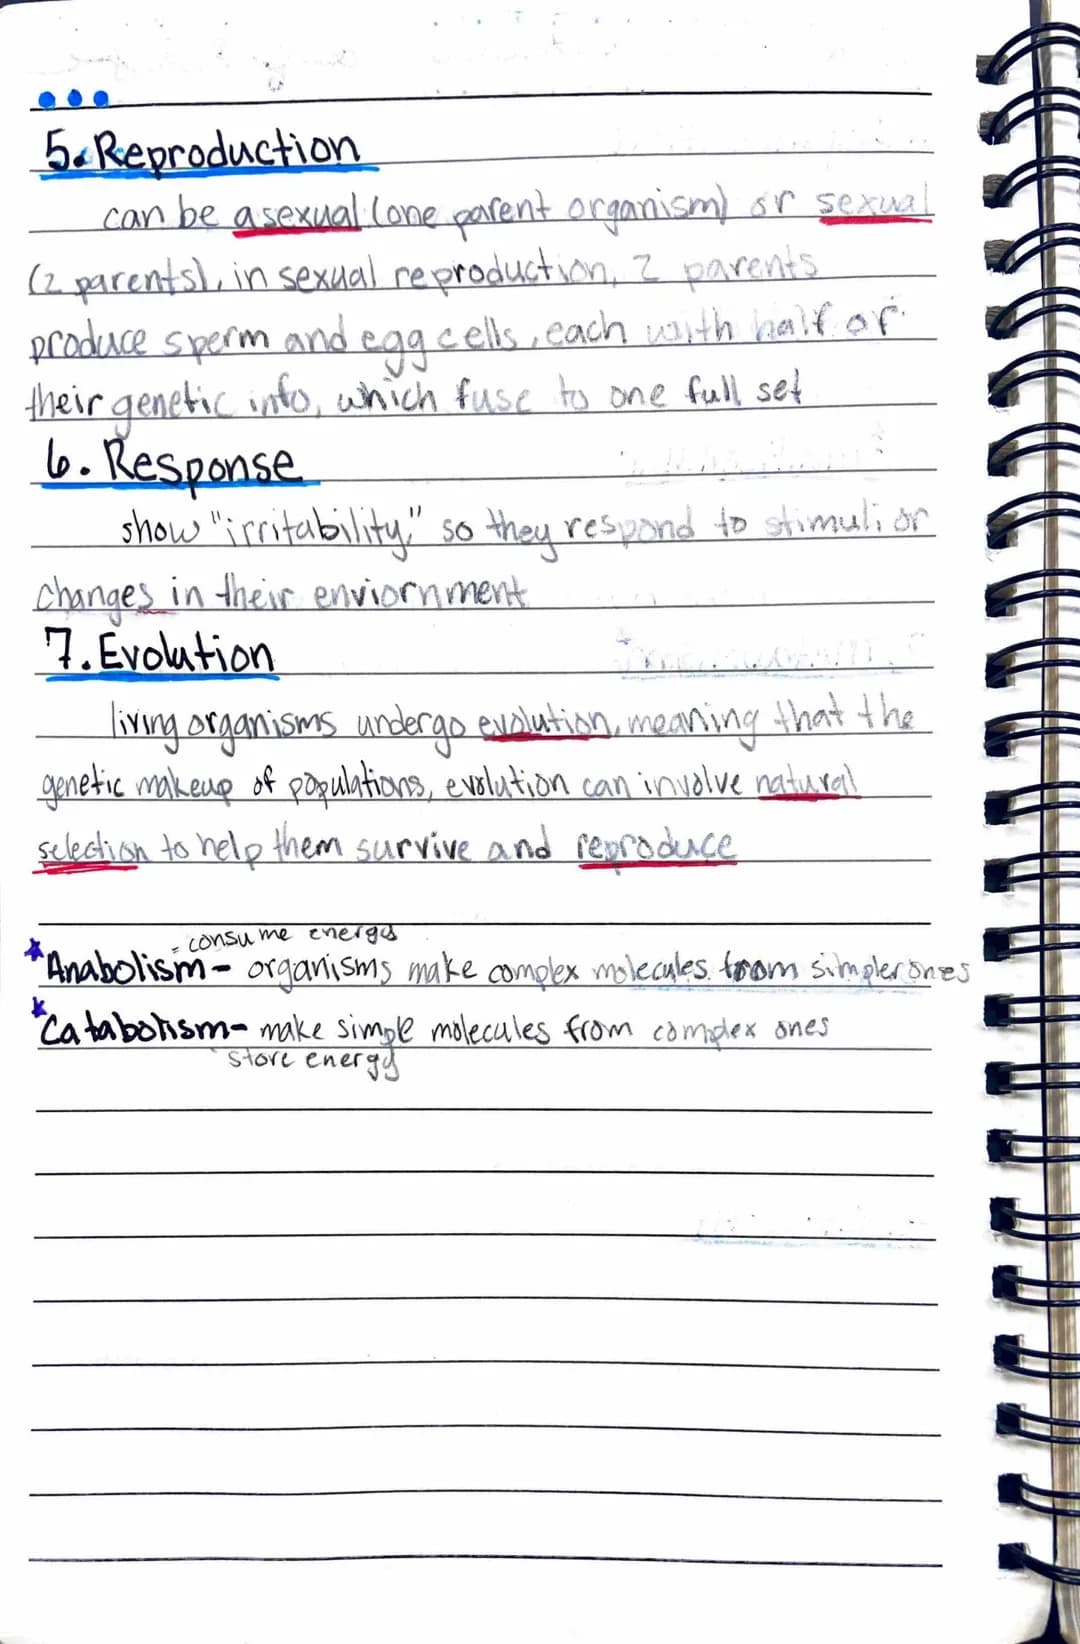 5. Reproduction
can be asexual (one parent organism) or sexual
(2 parents), in sexual reproduction, 2 parents
produce sperm and egg cells, each with half of
their genetic info, which fuse to one full set
6. Response
show "irritability," so they respond to stimuli or
changes in their enviornment
7. Evolution
living organisms undergo evolution, meaning that the
genetic makeup of populations, evolution can involve natural
selection to help them survive and reproduce
= consume energy
*Anabolism - organisms make complex molecules from simpler ones
*Catabolism - make simple molecules from complex ones
store energy